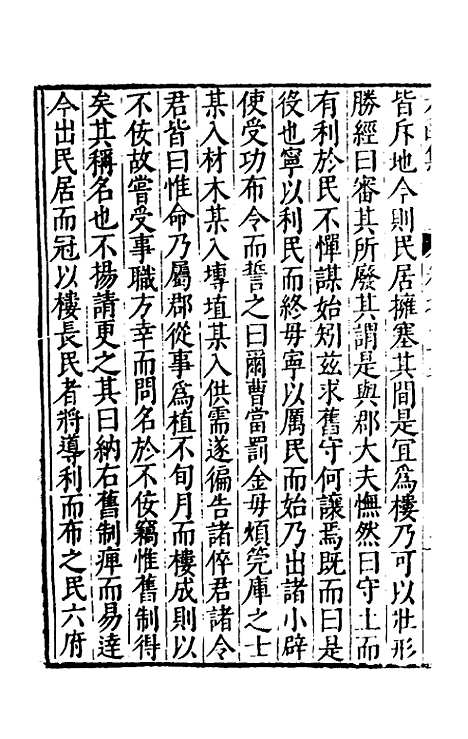 皆斥地今則民居擁塞其間是宜爲樓乃可以壯形
勝經曰審其所廢其謂是與郡大夫憮然曰守土而
有利於民不憚謀始矧茲求舊守何讓焉旣而曰是
役也寧以利民而終毋寧以厲民而始乃出諸小辟
使受功布令而誓之曰爾曹當罰金毋煩筦庫之士
某入材木某入塼埴某入供需遂徧告諸倅君諸令
君皆曰惟命乃屬郡從事爲植不旬月而樓成則以
不佞故嘗受事職方幸而問名於不佞竊惟舊制得
矣其稱名也不揚請更之其曰納右舊制痺而易達
今出民居而冠以樓長民者將導利而布之民六府